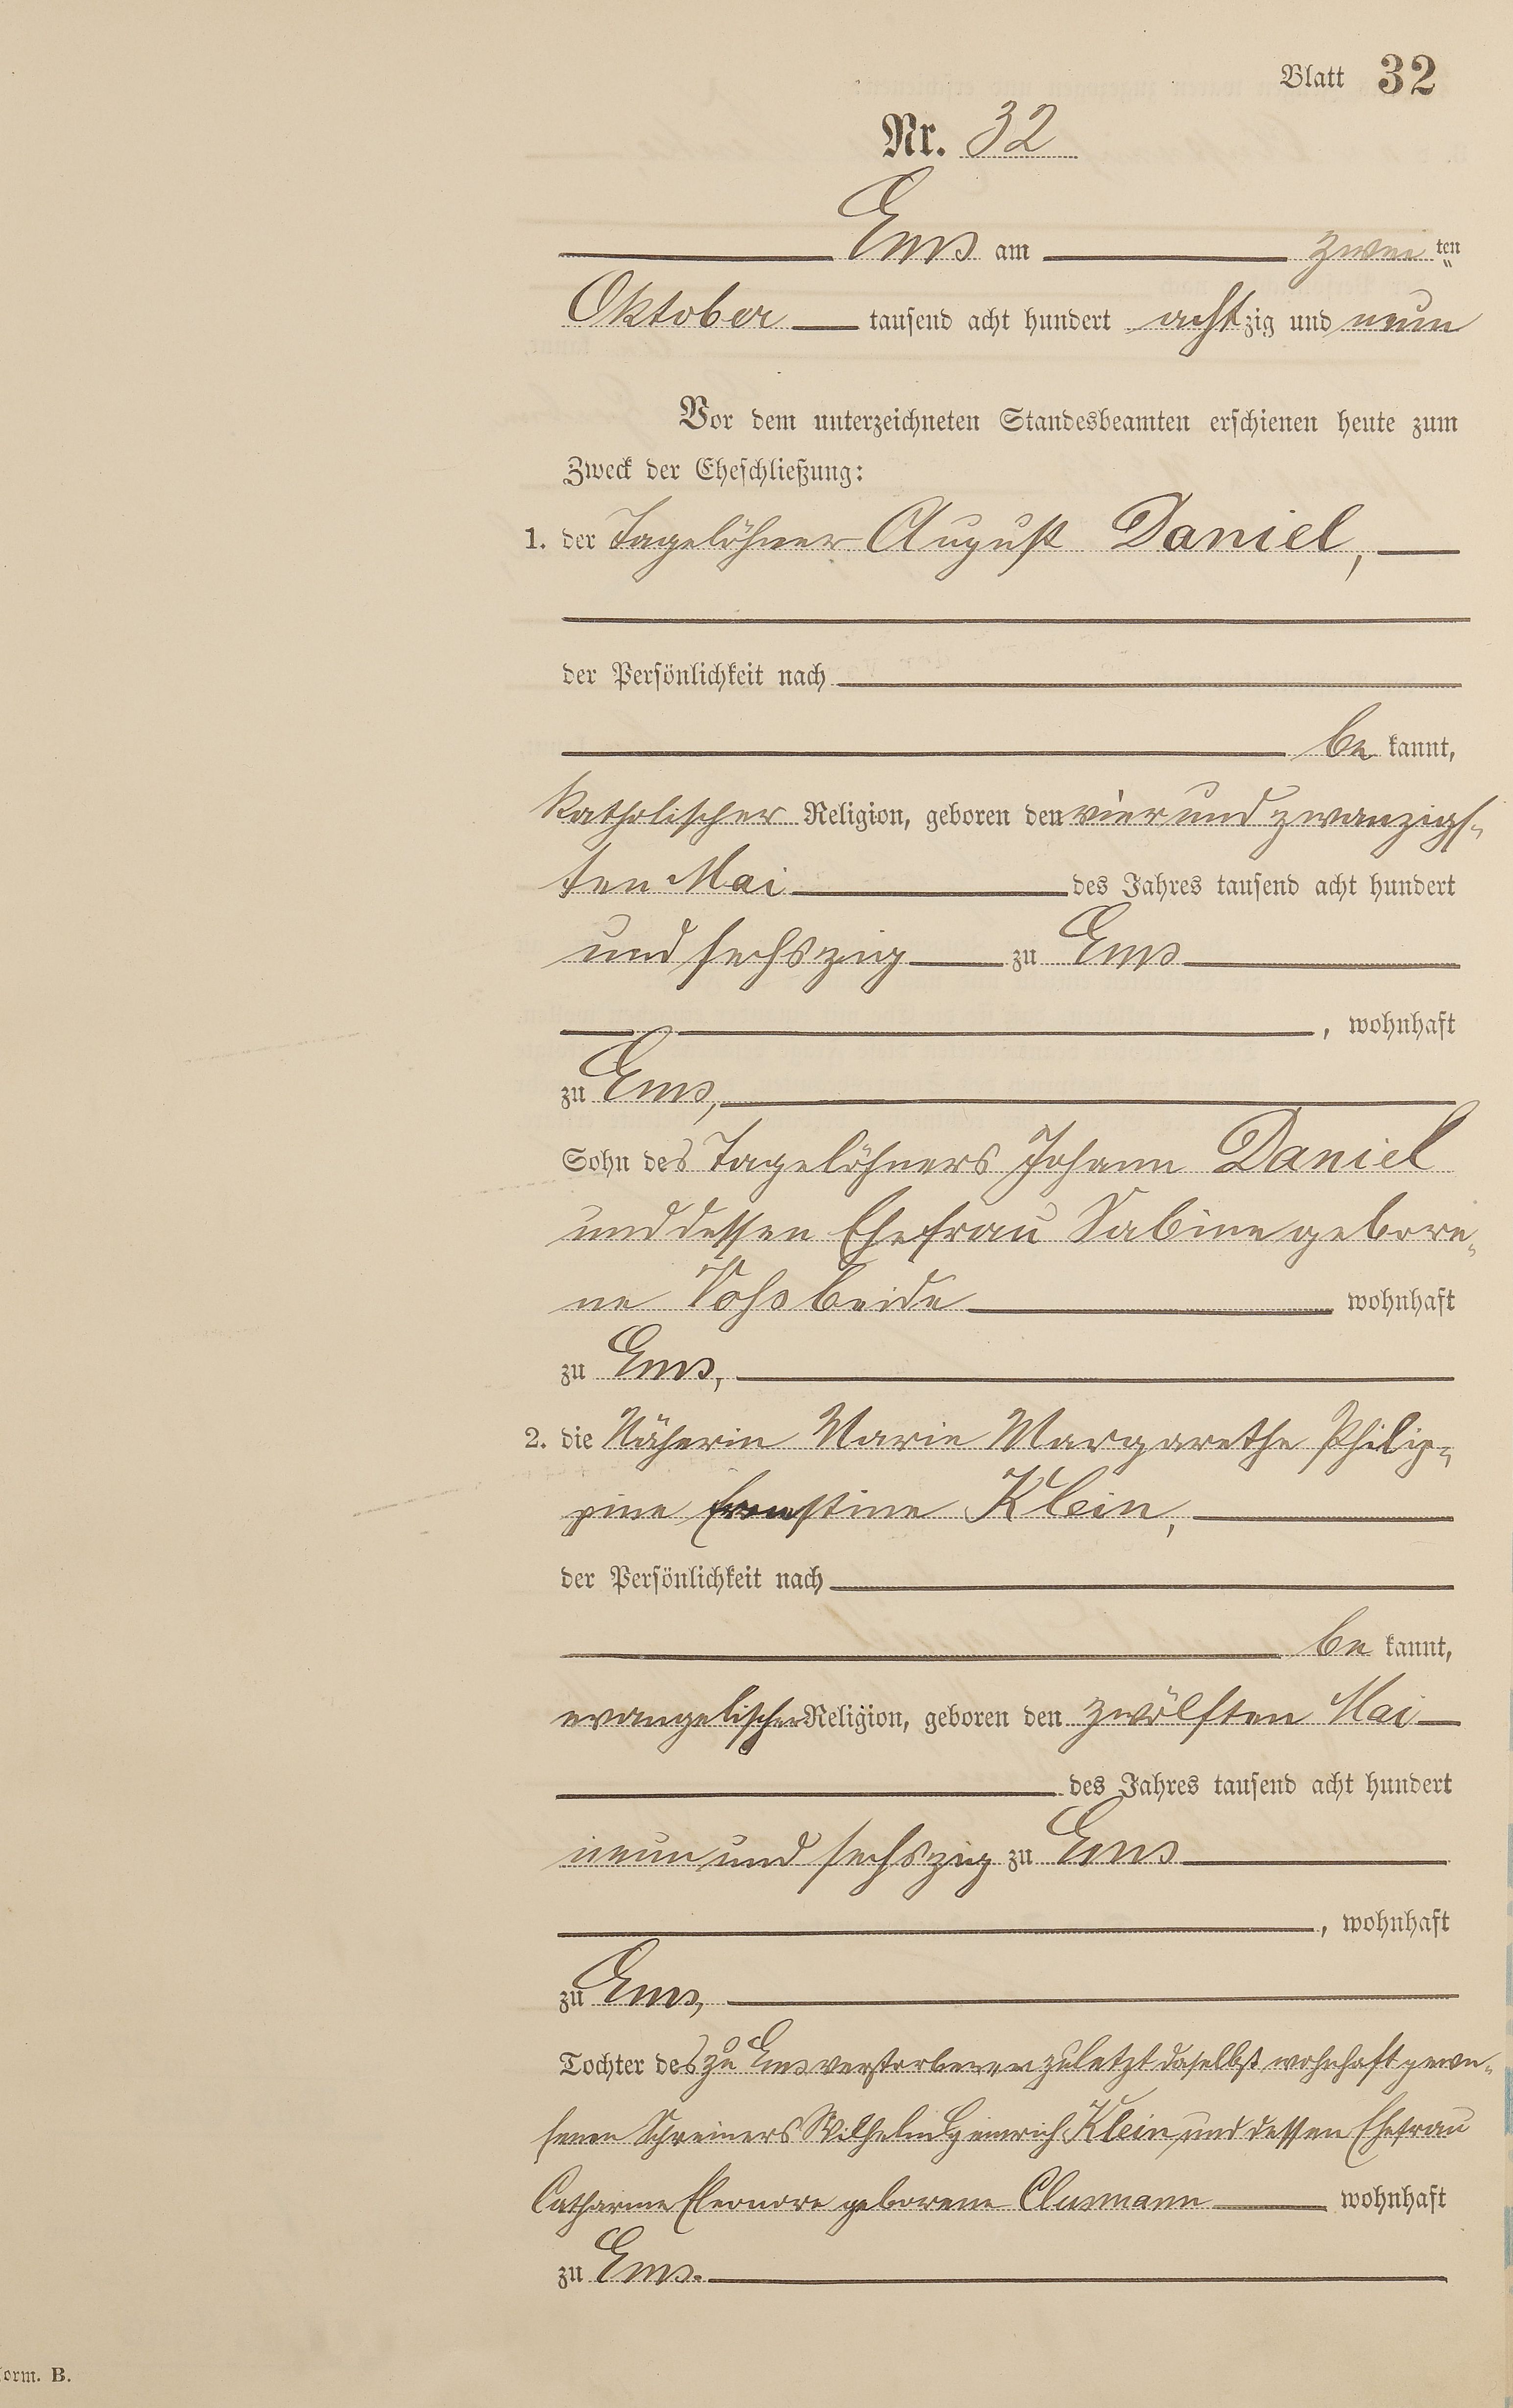 Blatt 32
Nr. 32
Ems am zwei ten
Oktober tausend acht hundert achtzig und neun
Vor dem unterzeichneten Standesbeamten erschienen heute zum
Zweck der Eheschließung:
1. der Tagelöhner August Daniel,
der Persönlichkeit nach
be kannt,
katholischer Religion, geboren den vier und zwanzigs-
ten Mai des Jahres tausend acht hundert
und sechszig zu Ems
, wohnhaft
zu Ems,
Sohn des Tagelöhners Johann Daniel
und dessen Ehefrau Sabine gebore-
ne beide wohnhaft
zu Ems,
2. die Näherin Marie Margarethe Philip-
pine Ernestine Klein,
der Persönlichkeit nach
be kannt,
evangelischer Religion, geboren den zwölften Mai
des Jahres tausend acht hundert
neun und sechszig zu Ems
, wohnhaft
zu Ems,
Tochter des zu Ems verstorbenen zuletzt daselbst wohnhaft gewe-
senen Schreiners Wilhelm Heinrich Klein und dessen Ehefrau
Catharine Eleonore geborene Clusmann wohnhaft
zu Ems.
orm. B.